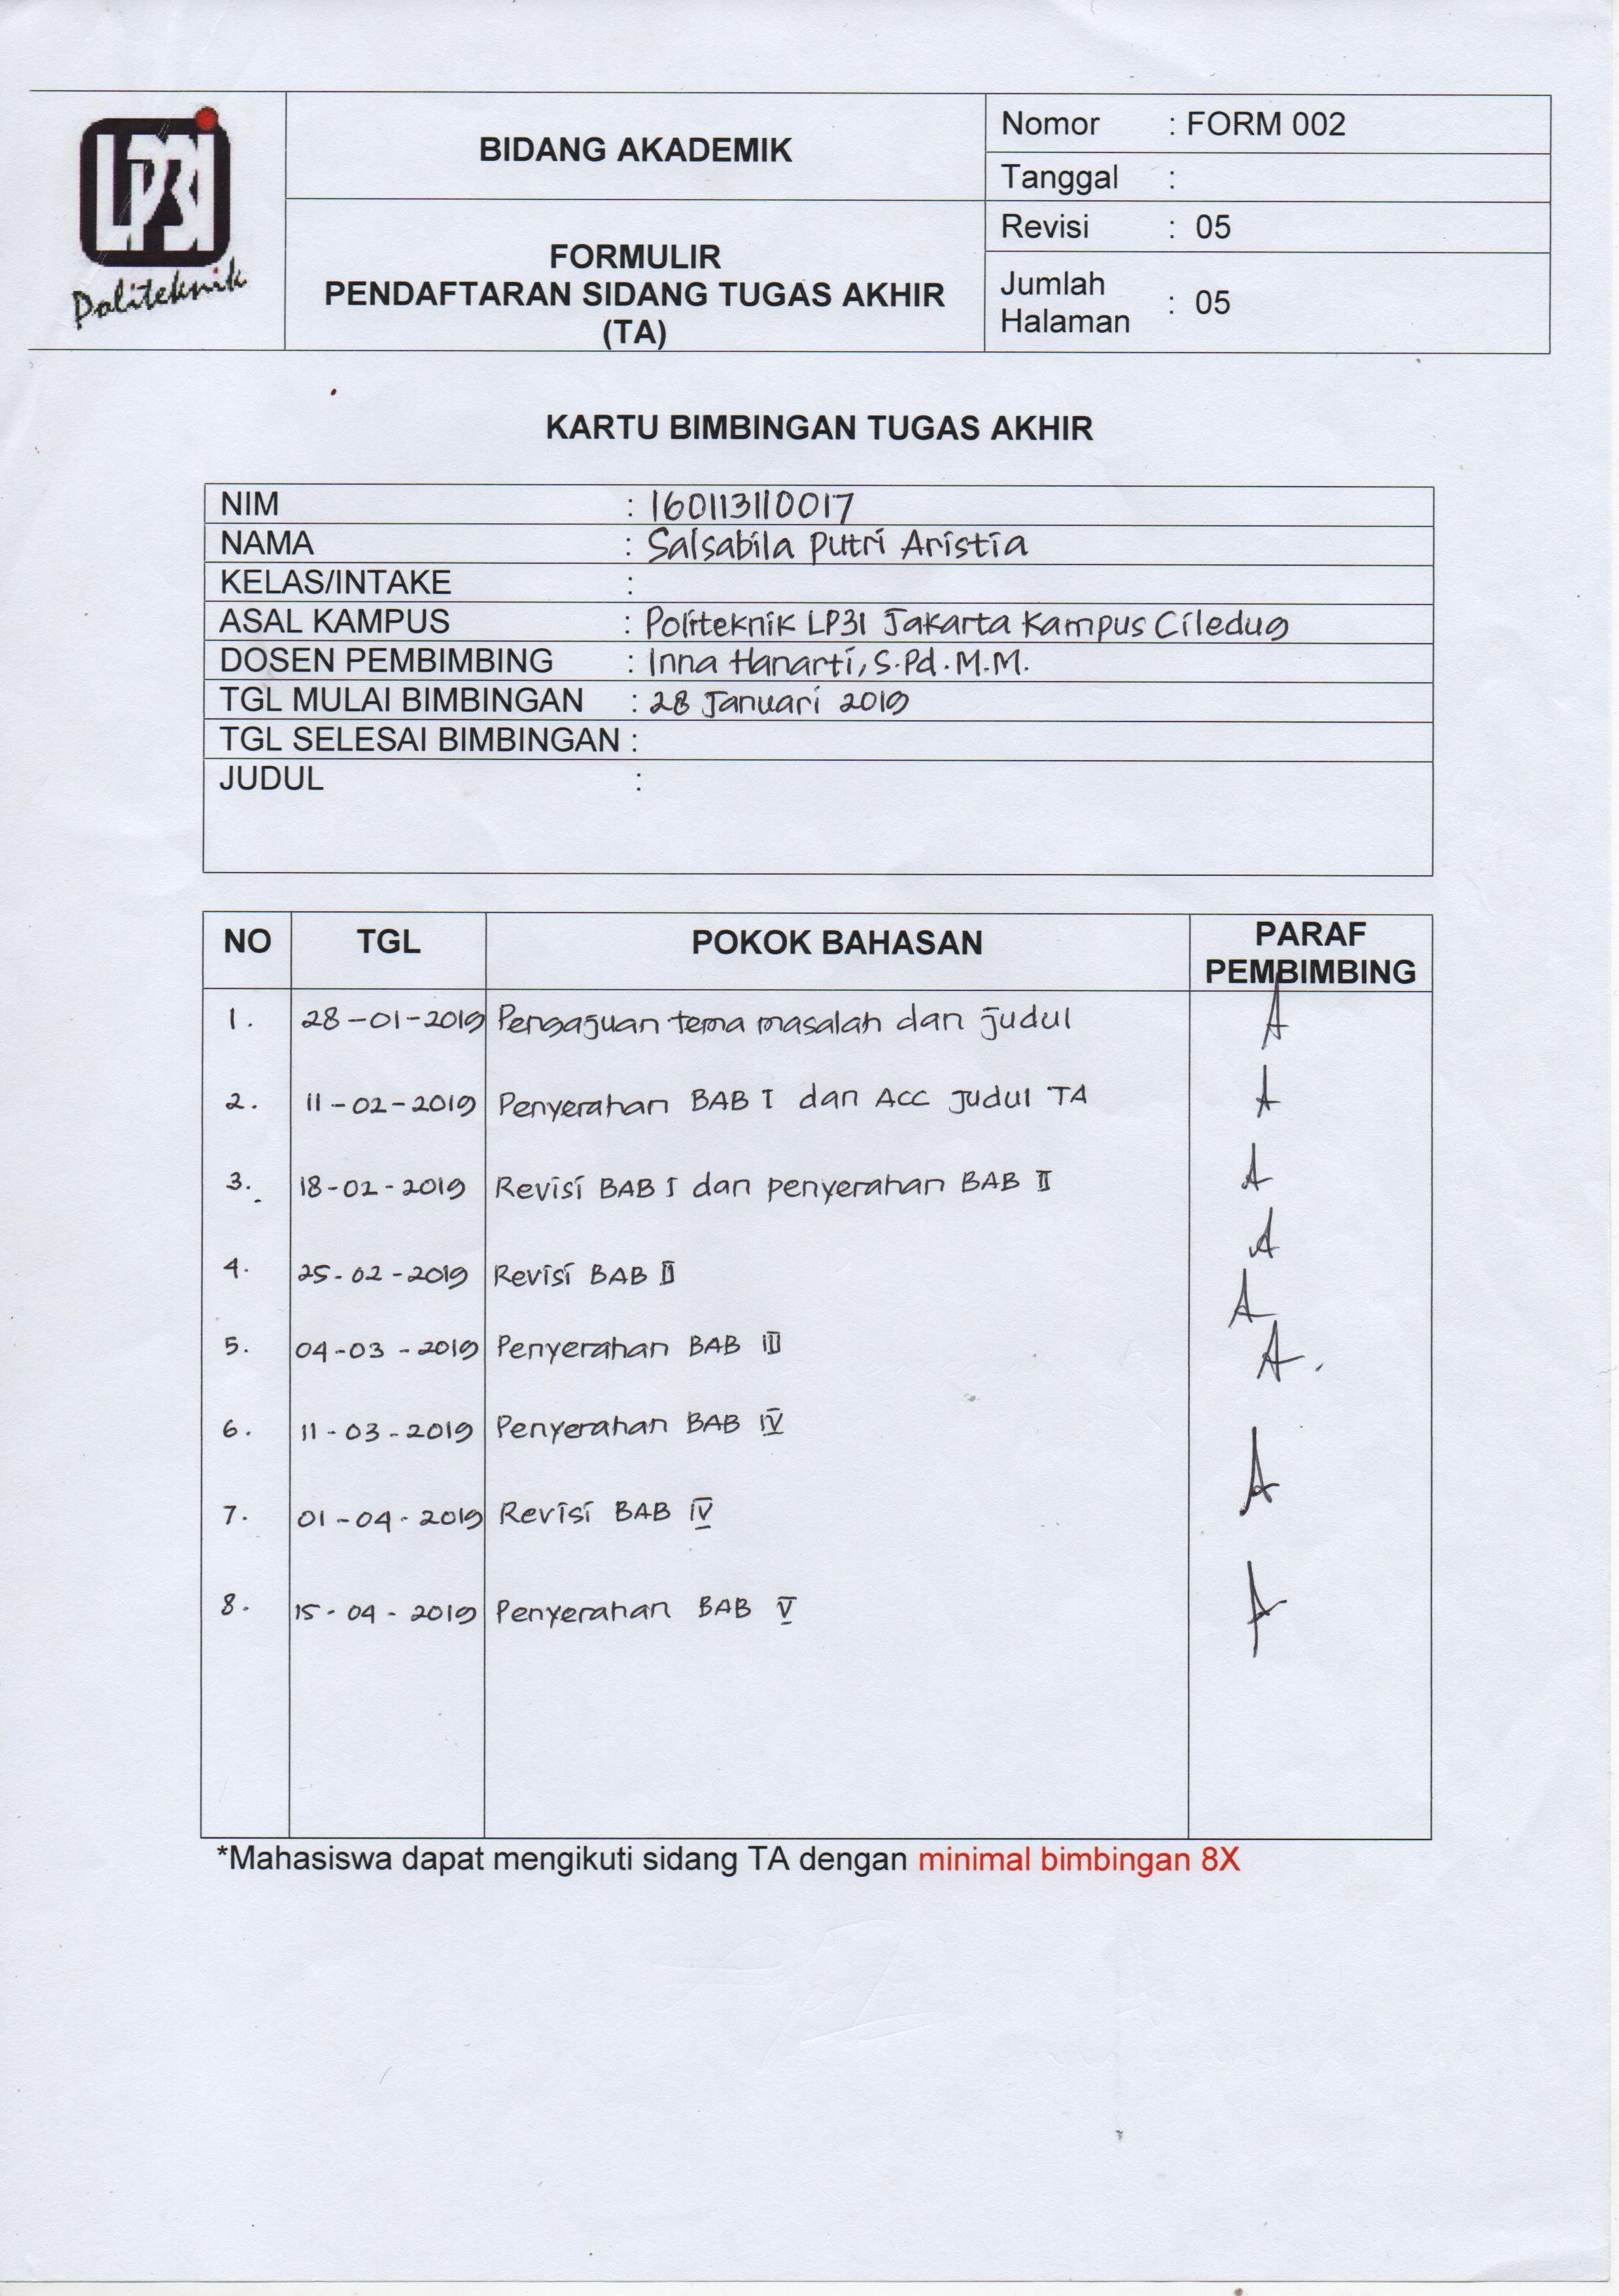 LP3I
Politeknik
BIDANG AKADEMIK
FORMULIR
PENDAFTARAN SIDANG TUGAS AKHIR
(TA)
Nomor : FORM 002
Tanggal :
Revisi : 05
Jumlah Halaman : 05
KARTU BIMBINGAN TUGAS AKHIR
NIM : 160113110017
NAMA : Salsabila Putri Aristia
KELAS/INTAKE :
ASAL KAMPUS : Politeknik LP3I Jakarta Kampus Ciledug
DOSEN PEMBIMBING : Inna Hanarti, S.Pd. M.M.
TGL MULAI BIMBINGAN : 28 Januari 2019
TGL SELESAI BIMBINGAN :
JUDUL :
NO TGL POKOK BAHASAN PARAF PEMBIMBING
1. 28-01-2019 Pengajuan tema masalah dan judul
2. 11-02-2019 Penyerahan BAB I dan Acc Judul TA
3. 18-02-2019 Revisi BAB I dan penyerahan BAB II
4. 25-02-2019 Revisi BAB II
5. 04-03-2019 Penyerahan BAB III
6. 11-03-2019 Penyerahan BAB IV
7. 01-04-2019 Revisi BAB IV
8. 15-04-2019 Penyerahan BAB V
*Mahasiswa dapat mengikuti sidang TA dengan minimal bimbingan 8X